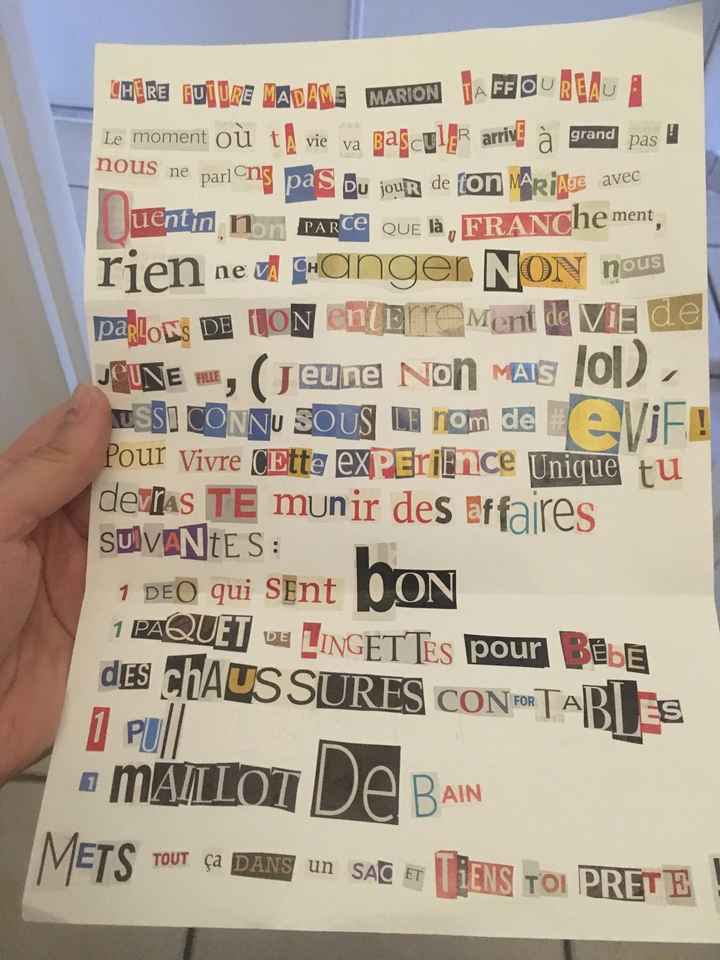 CHÈRE FUTURE MADAME MARION TAFFOUREAU :
Le moment où tA vie va BAScULER arrivE à grand pas !
nous ne parlOnS pas DU jouR de ton MARiAge avec
Quentin, non PARce QUE là, FRANChement,
rien ne vA CHanger. NON nous
paRLONS DE tON enterrement de ViE de
JEUNE FILLE, (Jeune Non MAIS lol),
AUSSI CONNU SOUS LE nom de #eVjF !
Pour Vivre CEtte exPERiENCE Unique tu
devrAs TE munir des affaires
SUIVANtES :
1 DEO qui sEnt bON
1 PAQUET DE LINGETTES pour BÉbÉ
dES chAUSSURES CONFORTABLES
1 PUll
1 mAILLOT De BAIN
METS TOUT ça DANS un SAC ET TiENS TOI PRETE !